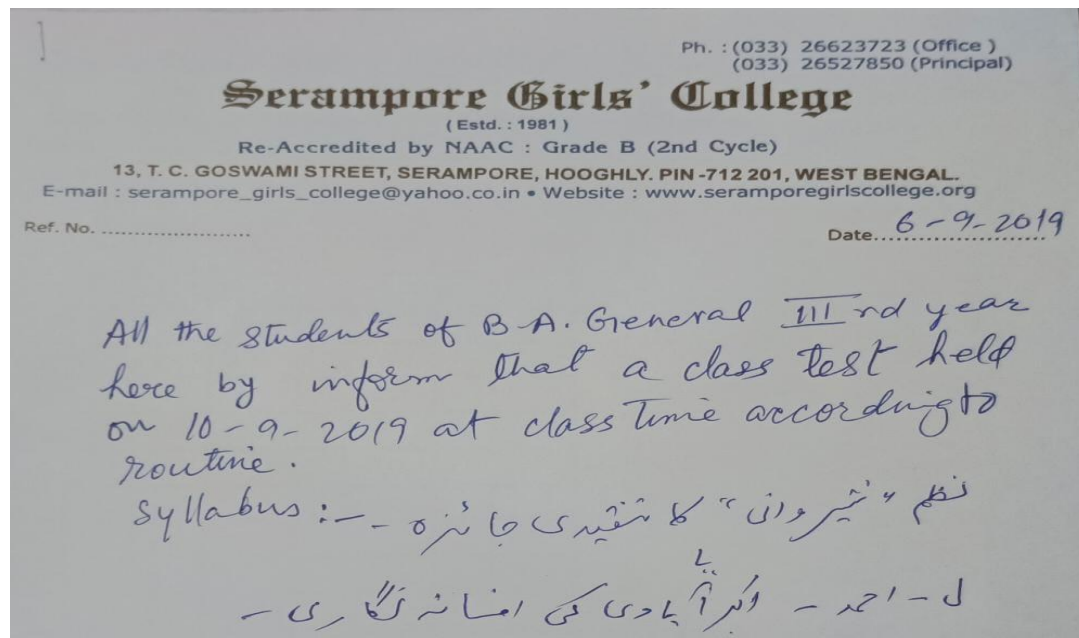 Ph. : (033) 26623723 (Office )
(033) 26527850 (Principal)
Serampore Girls' College
( Estd. : 1981 )
Re-Accredited by NAAC : Grade B (2nd Cycle)
13, T. C. GOSWAMI STREET, SERAMPORE, HOOGHLY. PIN -712 201, WEST BENGAL.
E-mail : serampore_girls_college@yahoo.co.in • Website : www.seramporegirlscollege.org
Ref. No. ........................... Date...6-9-2019
All the students of B.A. General III rd year
here by inform that a class test held
on 10-9-2019 at class time according to
routine.
Syllabus :- نظم " " کا تنقیدی جائزہ -
ل - احمد - اکبر آبادی کی افسانہ نگاری -